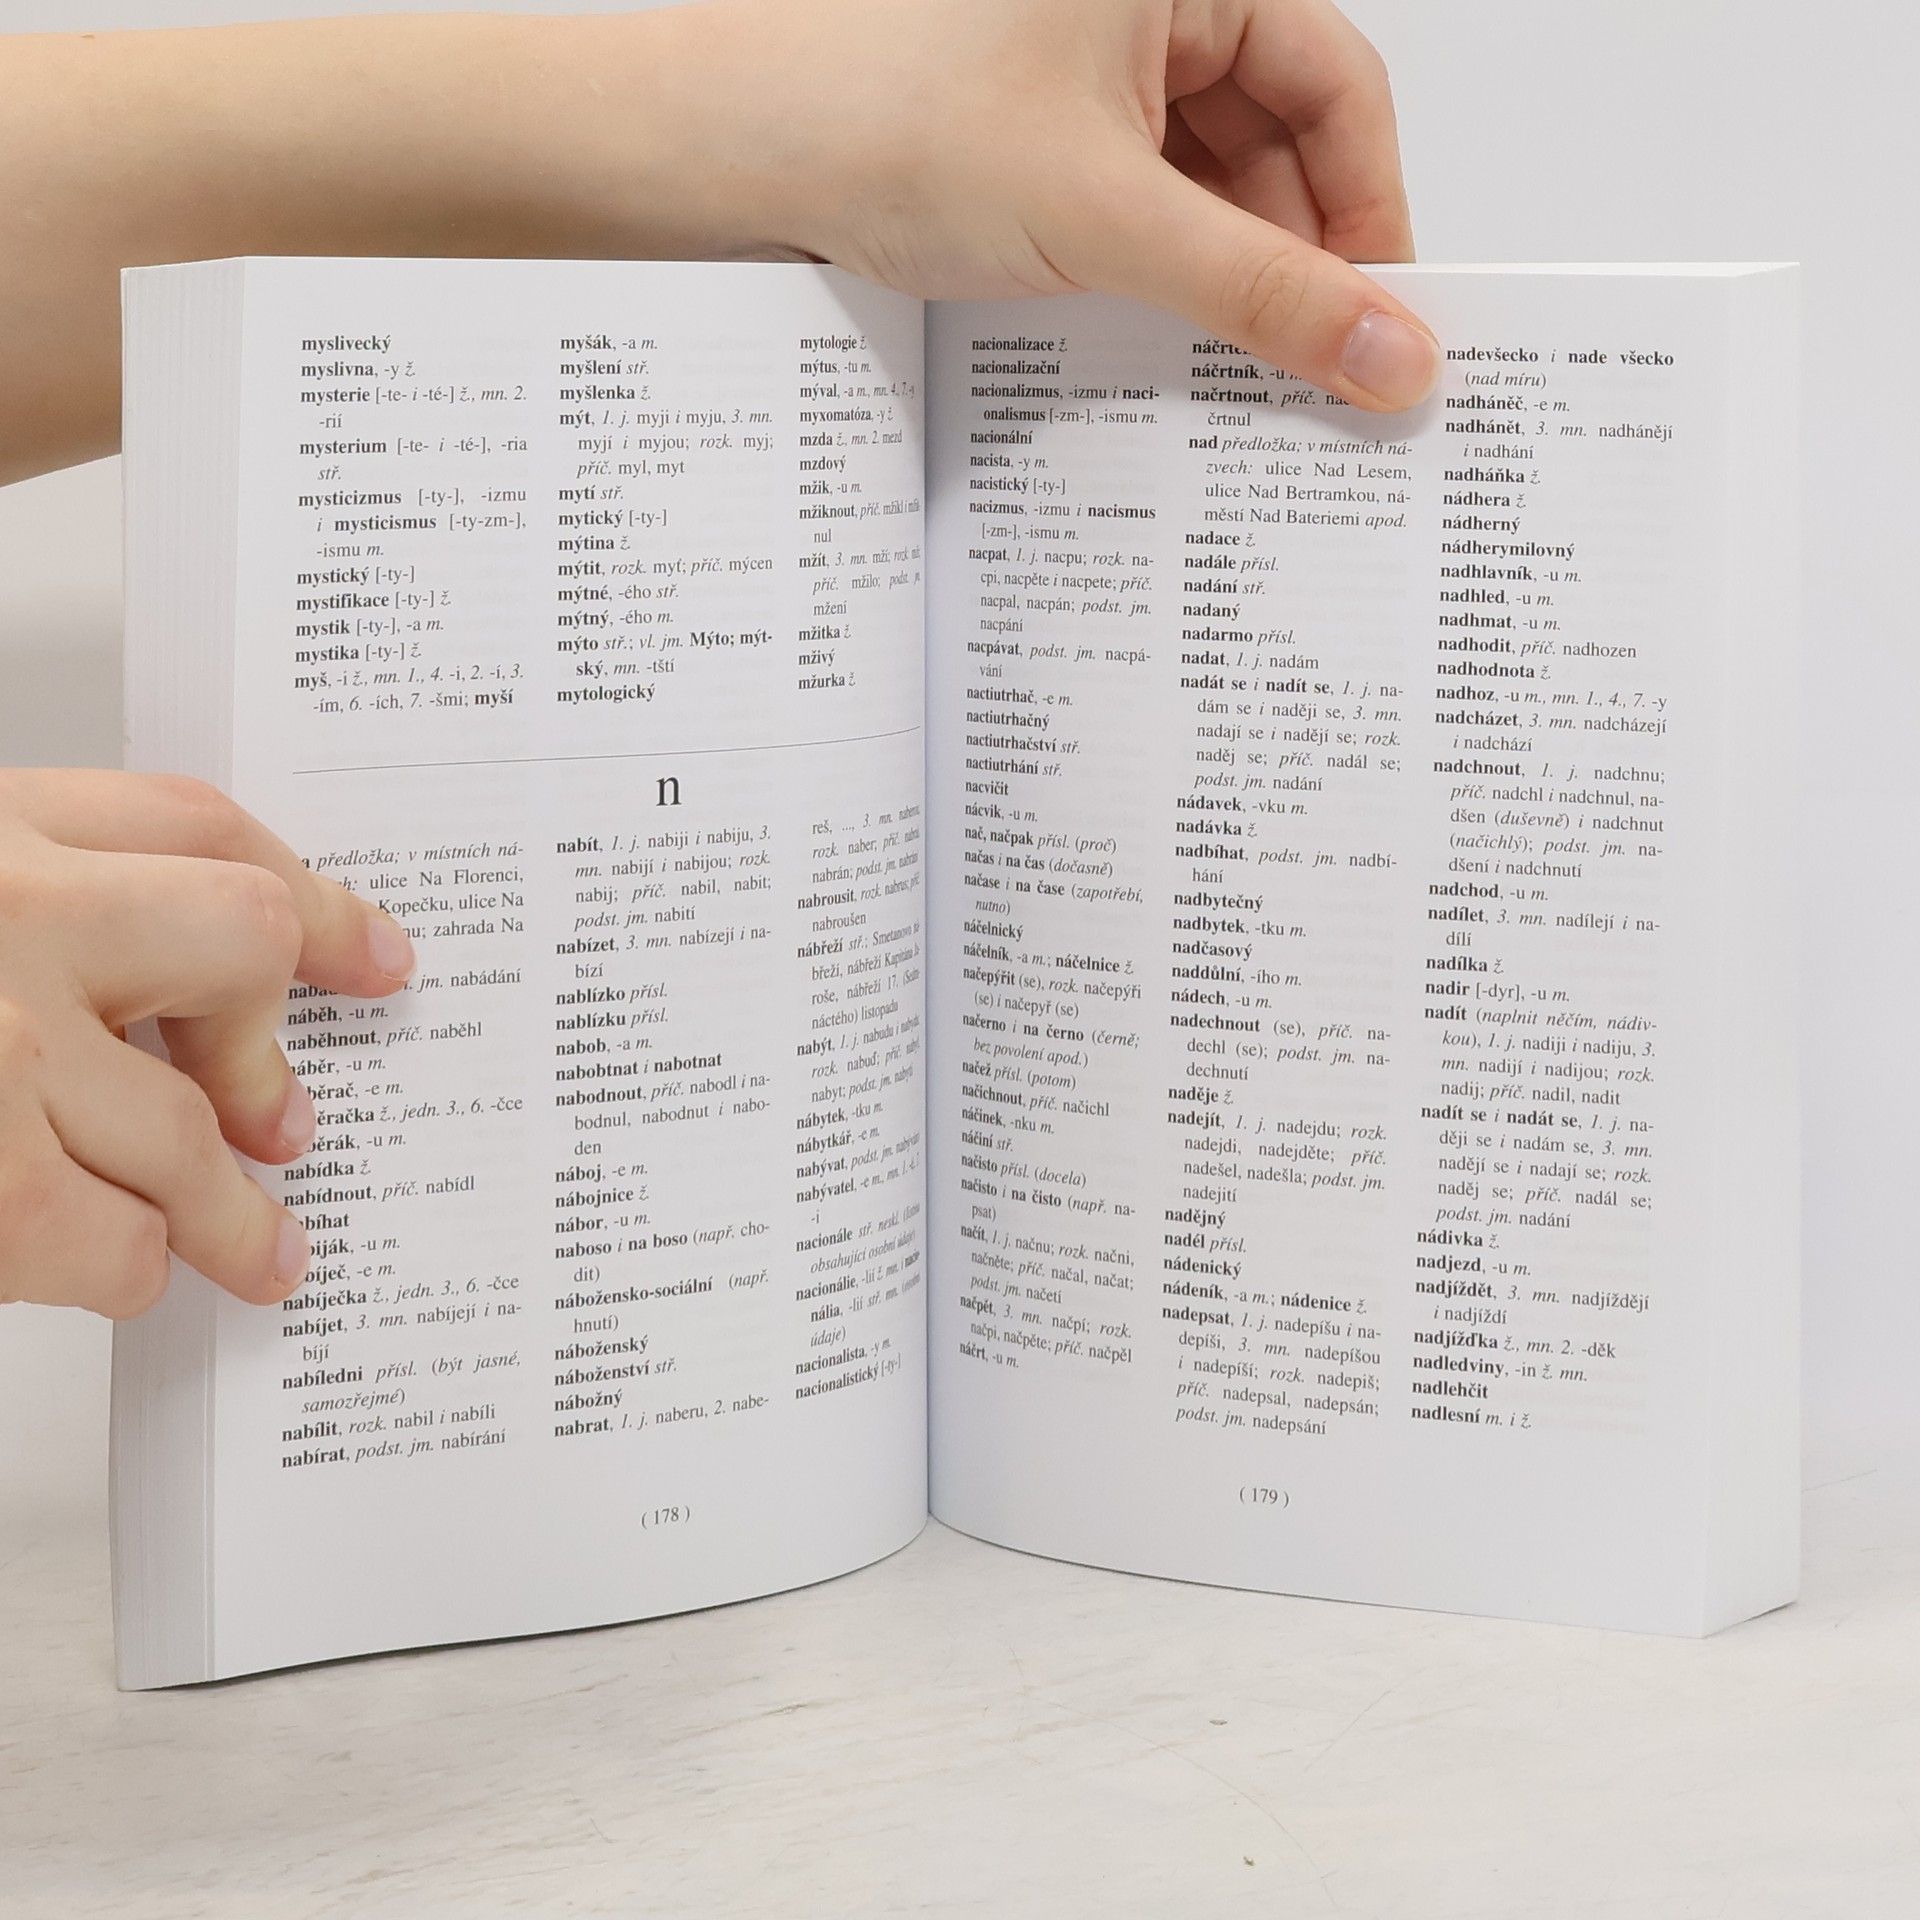 myslivecký
myslivna, -y ž.
mysterie [-te- i -té-] ž., mn. 2.
-rií
mysterium [-te- i -té-], -ria
stř.
mysticizmus [-ty-], -izmu
i mysticismus [-ty-zm-],
-ismu m.
mystický [-ty-]
mystifikace [-ty-] ž.
mystik [-ty-], -a m.
mystika [-ty-] ž.
myš, -i ž., mn. 1., 4. -i, 2. -í, 3.
-ím, 6. -ích, 7. -šmi; myší
myšák, -a m.
myšlení stř.
myšlenka ž.
mýt, 1. j. myji i myju, 3. mn.
myjí i myjou; rozk. myj;
příč. myl, myt
mytí stř.
mytický [-ty-]
mýtina ž.
mýtit, rozk. myť; příč. mýcen
mýtné, -ého stř.
mýtný, -ého m.
mýto stř.; vl. jm. Mýto; mýt-
ský, mn. -tští
mytologický
mytologie ž.
mýtus, -tu m.
mýval, -a m., mn. 4., 7. -y
myxomatóza, -y ž.
mzda ž., mn. 2. mezd
mzdový
mžik, -u m.
mžiknout, příč. mžikl i mžik-
nul
mžít, 3. mn. mží; rozk. mži;
příč. mžilo; podst. jm.
mžení
mžitka ž.
mživý
mžurka ž.
n
předložka; v místních ná-
ulice Na Florenci,
Kopečku, ulice Na
zahrada Na
jm. nabádání
náběh, -u m.
naběhnout, příč. naběhl
-u m.
-e m.
ž., jedn. 3., 6. -čce
-u m.
nabídka ž.
nabídnout, příč. nabídl
-u m.
-e m.
nabíječka ž., jedn. 3., 6. -čce
nabíjet, 3. mn. nabíjejí i na-
bíjí
nabíledni přísl. (být jasné,
samozřejmé)
nabílit, rozk. nabil i nabíli
nabírat, podst. jm. nabírání
nabít, 1. j. nabiji i nabiju, 3.
mn. nabijí i nabijou; rozk.
nabij; příč. nabil, nabit;
podst. jm. nabití
nabízet, 3. mn. nabízejí i na-
bízí
nablízko přísl.
nablízku přísl.
nabob, -a m.
nabobtnat i nabotnat
nabodnout, příč. nabodl i na-
bodnul, nabodnut i nabo-
den
náboj, -e m.
nábojnice ž.
nábor, -u m.
naboso i na boso (např. cho-
dit)
nábožensko-sociální (např.
hnutí)
náboženský
náboženství stř.
nábožný
nabrat, 1. j. naberu, 2. nabe-
reš, ..., 3. mn. naberou,
rozk. naber; příč. nabral,
nabrán; podst. jm. nabrání
nabrousit, rozk. nabrus; příč.
nabroušen
nábřeží stř.; Smetanovo ná-
břeží, nábřeží Kapitána Ja-
roše, nábřeží 17. (Sedm-
náctého) listopadu
nabýt, 1. j. nabudu i nabydu;
rozk. nabuď; příč. nabyl,
nabyt; podst. jm. nabytí
nábytek, -tku m.
nábytkář, -e m.
nabývat, podst. jm. nabývání
nabyvatel, -e m., mn. 1. -é i
-i
nacionále stř. neskl. (listina
obsahující osobní údaje)
nacionálie, -lií ž. mn. i nacio-
nália, -lií stř. mn. (osobní
údaje)
nacionalista, -y m.
nacionalistický [-ty-]
( 178 )
nacionalizace ž.
nacionalizační
nacionalizmus, -izmu i naci-
onalismus [-zm-], -ismu m.
nacionální
nacista, -y m.
nacistický [-ty-]
nacizmus, -izmu i nacismus
[-zm-], -ismu m.
nacpat, 1. j. nacpu; rozk. na-
cpi, nacpěte i nacpete; příč.
nacpal, nacpán; podst. jm.
nacpání
nacpávat, podst. jm. nacpá-
vání
nactiutrhač, -e m.
nactiutrhačný
nactiutrhačství stř.
nactiutrhání stř.
nacvičit
nácvik, -u m.
nač, načpak přísl. (proč)
načas i na čas (dočasně)
načase i na čase (zapotřebí,
nutno)
náčelnický
náčelník, -a m.; náčelnice ž.
načepýřit (se), rozk. načepýři
(se) i načepyř (se)
načerno i na černo (černě;
bez povolení apod.)
načež přísl. (potom)
načichnout, příč. načichl
náčinek, -nku m.
náčiní stř.
načisto přísl. (docela)
načisto i na čisto (např. na-
psat)
načít, 1. j. načnu; rozk. načni,
načněte; příč. načal, načat;
podst. jm. načetí
načpět, 3. mn. načpí; rozk.
načpi, načpěte; příč. načpěl
náčrt, -u m.
náčrtník, -u
načrtnout, příč.
črtnul
nad předložka; v místních ná-
zvech: ulice Nad Lesem,
ulice Nad Bertramkou, ná-
městí Nad Bateriemi apod.
nadace ž.
nadále přísl.
nadání stř.
nadaný
nadarmo přísl.
nadat, 1. j. nadám
nadát se i nadít se, 1. j. na-
dám se i naději se, 3. mn.
nadají se i nadějí se; rozk.
naděj se; příč. nadál se;
podst. jm. nadání
nádavek, -vku m.
nadávka ž.
nadbíhat, podst. jm. nadbí-
hání
nadbytečný
nadbytek, -tku m.
nadčasový
naddůlní, -ího m.
nádech, -u m.
nadechnout (se), příč. na-
dechl (se); podst. jm. na-
dechnutí
naděje ž.
nadejít, 1. j. nadejdu; rozk.
nadejdi, nadejděte; příč.
nadešel, nadešla; podst. jm.
nadejití
nadějný
nadél přísl.
nádenický
nádeník, -a m.; nádenice ž.
nadepsat, 1. j. nadepíšu i na-
depíši, 3. mn. nadepíšou
i nadepíší; rozk. nadepiš;
příč. nadepsal, nadepsán;
podst. jm. nadepsání
nadevšecko i nade všecko
(nad míru)
nadháněč, -e m.
nadhánět, 3. mn. nadhánějí
i nadhání
nadháňka ž.
nádhera ž.
nádherný
nádherymilovný
nadhlavník, -u m.
nadhled, -u m.
nadhmat, -u m.
nadhodit, příč. nadhozen
nadhodnota ž.
nadhoz, -u m., mn. 1., 4., 7. -y
nadcházet, 3. mn. nadcházejí
i nadchází
nadchnout, 1. j. nadchnu;
příč. nadchl i nadchnul, na-
dšen (duševně) i nadchnut
(načichlý); podst. jm. na-
dšení i nadchnutí
nadchod, -u m.
nadílet, 3. mn. nadílejí i na-
dílí
nadílka ž.
nadir [-dyr], -u m.
nadít (naplnit něčím, nádiv-
kou), 1. j. nadiji i nadiju, 3.
mn. nadijí i nadijou; rozk.
nadij; příč. nadil, nadit
nadít se i nadát se, 1. j. na-
ději se i nadám se, 3. mn.
nadějí se i nadají se; rozk.
naděj se; příč. nadál se;
podst. jm. nadání
nádivka ž.
nadjezd, -u m.
nadjíždět, 3. mn. nadjíždějí
i nadjíždí
nadjížďka ž., mn. 2. -děk
nadledviny, -in ž. mn.
nadlehčit
nadlesní m. i ž.
( 179 )